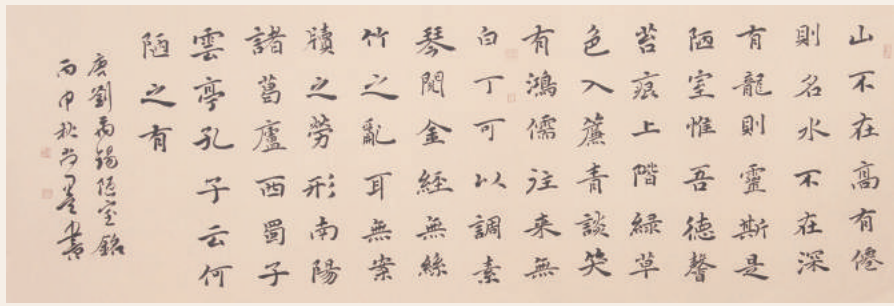 山不在高有僊
則名水不在深
有龍則靈斯是
陋室惟吾德馨
苔痕上階緑草
色入簾青談笑
有鴻儒往来無
白丁可以調素
琴閲金經無絲
竹之亂耳無案
牘之勞形南陽
諸葛廬西蜀子
雲亭孔子云何
陋之有
唐劉禹錫陋室銘
丙申秋尚書